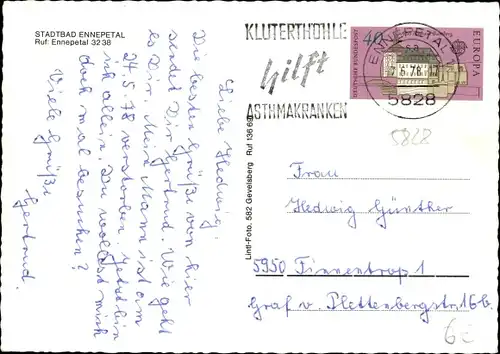 STADTBAD ENNEPETAL
Ruf: Ennepetal 32 38
Liebe Hedwig,
Die besten Grüße von hier
sendet Dir Gertrud. Wie geht
es Dir. Mein Mann ist am
24.5.78 verstorben. Jetzt bin
ich allein. Du wolltest mich
doch mal besuchen?
Viele Grüße
Gertrud.
Lintl-Foto, 582 Gevelsberg Ruf 136 60
KLUTERTHÖHLE
hilft
ASTHMAKRANKEN
ENNEPETAL 1
6.78
5828
40
DEUTSCHE BUNDESPOST
EUROPA
5828
Frau
Hedwig Günther
5950 Finnentrop 1
Graf v. Plettenbergstr. 16b
6E